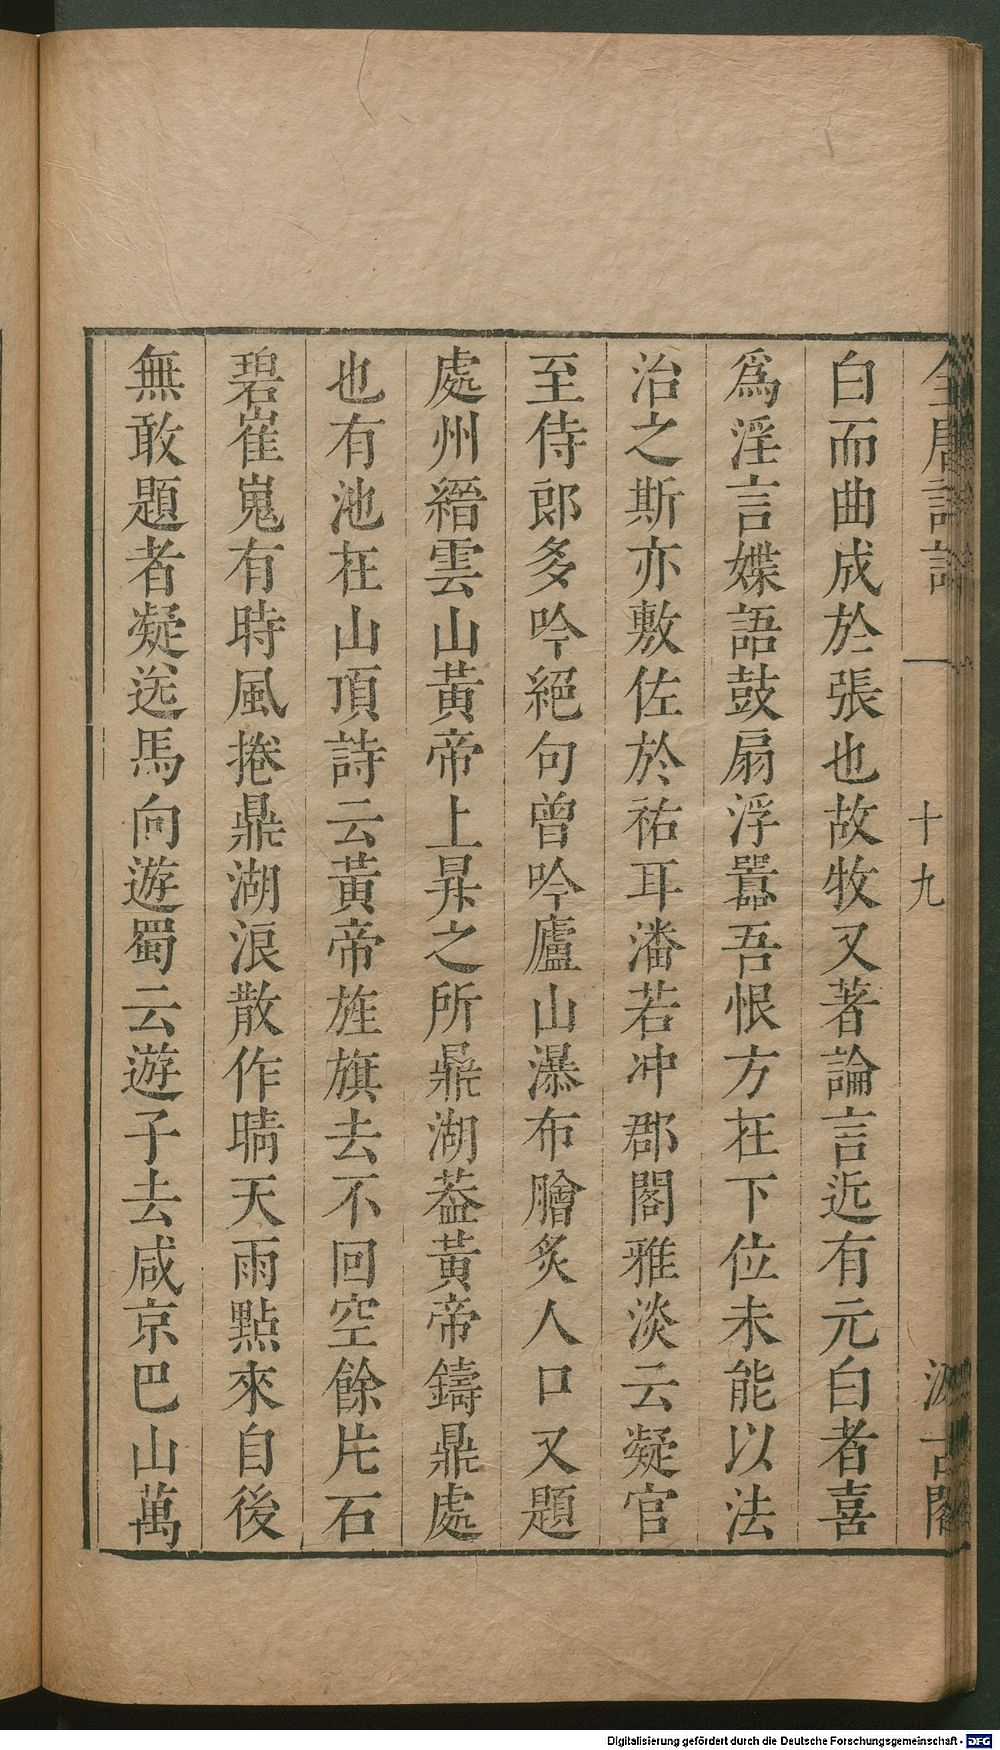 全唐詩話 一 十九 汲古閣
白而曲成於張也故牧又著論言近有元白者喜
爲淫言媟語鼓扇浮囂吾恨方在下位未能以法
治之斯亦敷佐於祐耳潘若冲郡閣雅淡云凝官
至侍郎多吟絕句曾吟廬山瀑布膾炙人口又題
處州縉雲山黃帝上昇之所鼎湖葢黃帝鑄鼎處
也有池在山頂詩云黃帝旌旗去不回空餘片石
碧崔嵬有時風捲鼎湖浪散作晴天雨點來自後
無敢題者凝送馬向遊蜀云遊子去咸京巴山萬
Digitalisierung gefördert durch die Deutsche Forschungsgemeinschaft - DFG